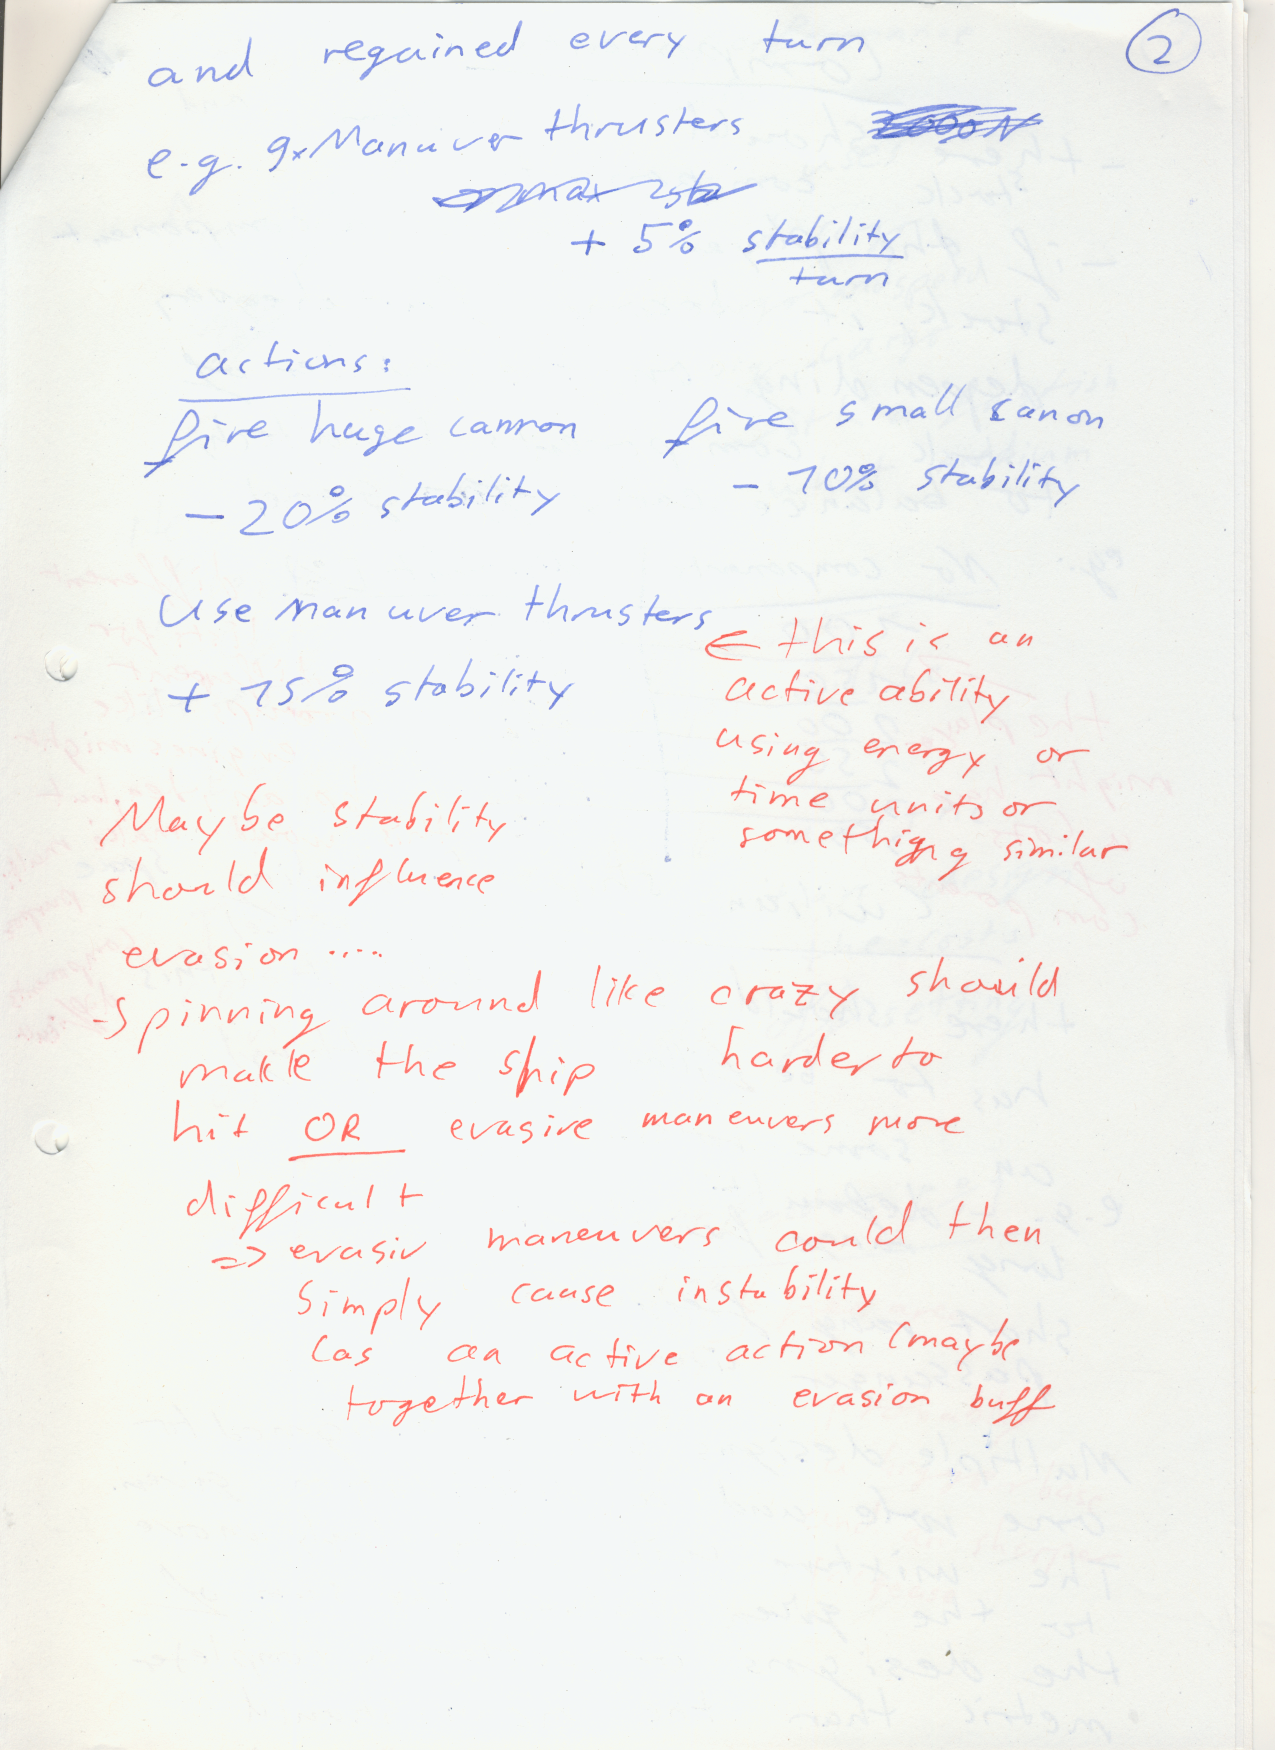 2
and regained every turn
e.g. 9xManuver thrusters
+ 5% stability
turn
actions:
fire huge cannon
- 20% stability
fire small canon
- 10% stability
Use Manuver thrusters
+ 15% stability
<= this is an
active ability
using energy or
time units or
something similar
Maybe stability
should influence
evasion ....
-Spinning around like crazy should
make the ship harder to
hit OR evasive maneuvers more
difficult
=> evasiv maneuvers could then
simply cause instability
(as an active action (maybe
together with an evasion buff